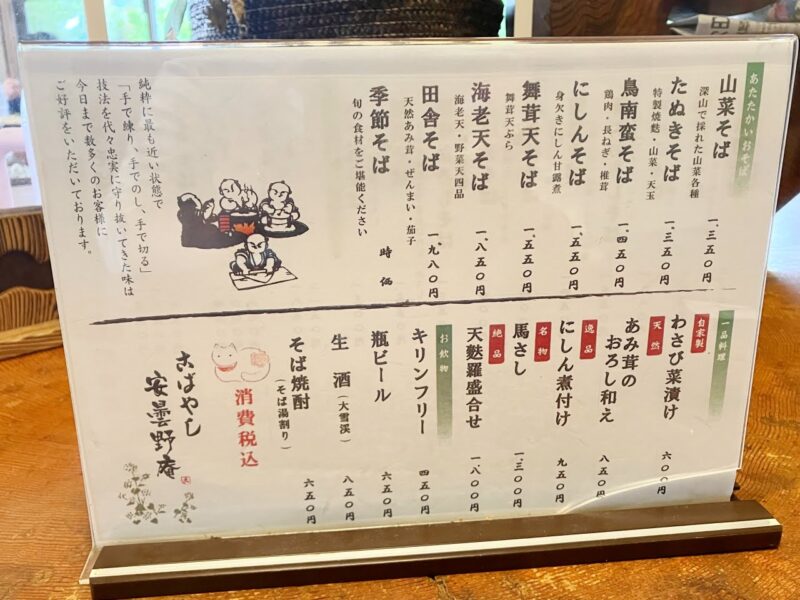 あたたかいおそば
山菜そば
深山で採れた山菜各種
一、三五〇円
たぬきそば
特製焼麩・山菜・天玉
一、三五〇円
鳥南蛮そば
鶏肉・長ねぎ・椎茸
一、四五〇円
にしんそば
身欠きにしん甘露煮
一、五五〇円
舞茸天そば
舞茸天ぷら
一、五五〇円
海老天そば
海老天・野菜天四品
一、八五〇円
田舎そば
天然あみ茸・ぜんまい・茄子
一、九八〇円
季節そば
旬の食材をご堪能ください
時価
純粋に最も近い状態で
「手で練り、手でのし、手で切る」
技法を代々忠実に守り抜いてきた味は
今日まで数多くのお客様に
ご好評をいただいております。
一品料理
自家製
わさび菜漬け
六〇〇円
天然
あみ茸の
おろし和え
八五〇円
逸品
にしん煮付け
九五〇円
名物
馬さし
一、三〇〇円
絶品
天麩羅盛合せ
一、八〇〇円
お飲物
キリンフリー
四五〇円
瓶ビール
六五〇円
生酒(大雪渓)
八五〇円
そば焼酎
(そば湯割り)
六五〇円
消費税込
こばやし
安曇野庵